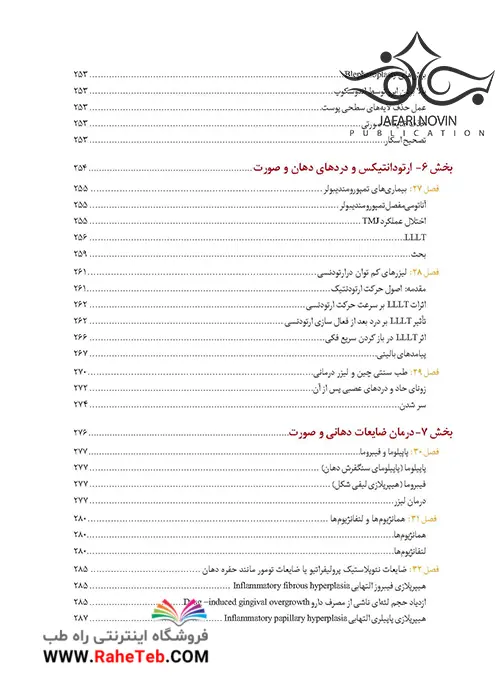 Blepharoplasty ۲۵۳
توسط لاندوسکوپ ۲۵۳
عمل حذف لایه‌های سطحی پوست ۲۵۳
صورتی ۲۵۳
تصحیح اسکار ۲۵۳
JAFARI NOVIN
PUBLICATION
بخش ۶- ارتودانتیکس و دردهای دهان و صورت ۲۵۴
فصل ۲۷: بیماری‌های تمپورومندیبولر ۲۵۵
آناتومی مفصل تمپورومندیبولر ۲۵۵
اختلال عملکرد TMJ ۲۵۵
LLLT ۲۵۶
بحث ۲۵۹
فصل ۲۸: لیزرهای کم توان درارتودنسی ۲۶۱
مقدمه: اصول حرکت ارتودنتیک ۲۶۱
اثرات LLLT بر سرعت حرکت ارتودنسی ۲۶۲
تأثیر LLLT بر درد بعد از فعال سازی ارتودنسی ۲۶۲
اثر LLLT در باز کردن سریع فکی ۲۶۶
پیامدهای بالینی ۲۶۷
فصل ۲۹: طب سنتی چین و لیزر درمانی ۲۷۰
زونای حاد و دردهای عصبی پس از آن ۲۷۲
سر شدن ۲۷۴
بخش ۷- درمان ضایعات دهانی و صورت ۲۷۶
فصل ۳۰: پاپیلوما و فیبروما ۲۷۷
پاپیلوما (پاپیلومای سنگفرش دهان) ۲۷۷
فیبروما (هیپرپلازی لیفی شکل) ۲۷۷
درمان لیزر ۲۷۷
فصل ۳۱: همانژیوم‌ها و لنفانژیوم‌ها ۲۸۰
همانژیوم‌ها ۲۸۰
لنفانژیوم‌ها ۲۸۰
فصل ۳۲: ضایعات نئوپلاستیک پرولیفراتیو یا ضایعات تومور مانند حفره دهان ۲۸۵
هیپرپلازی فیبروز التهابی Inflammatory fibrous hyperplasia ۲۸۵
ازدیاد حجم لثه‌ای ناشی از مصرف دارو Drug –induced gingival overgrowth ۲۸۵
هیپرپلازی پاپیلری التهابی Inflammatory papillary hyperplasia ۲۸۷
فروشگاه اینترنتی راه طب
WWW.RaheTeb.COM